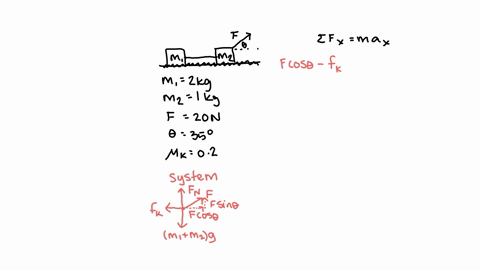 F
θ
m₁ m₂
ΣFₓ = maₓ
Fcosθ - fₖ
m₁ = 2kg
m₂ = 1kg
F = 20N
θ = 35°
μₖ = 0.2
system
F_N F
fₖ Fsinθ
Fcosθ
(m₁+m₂)g